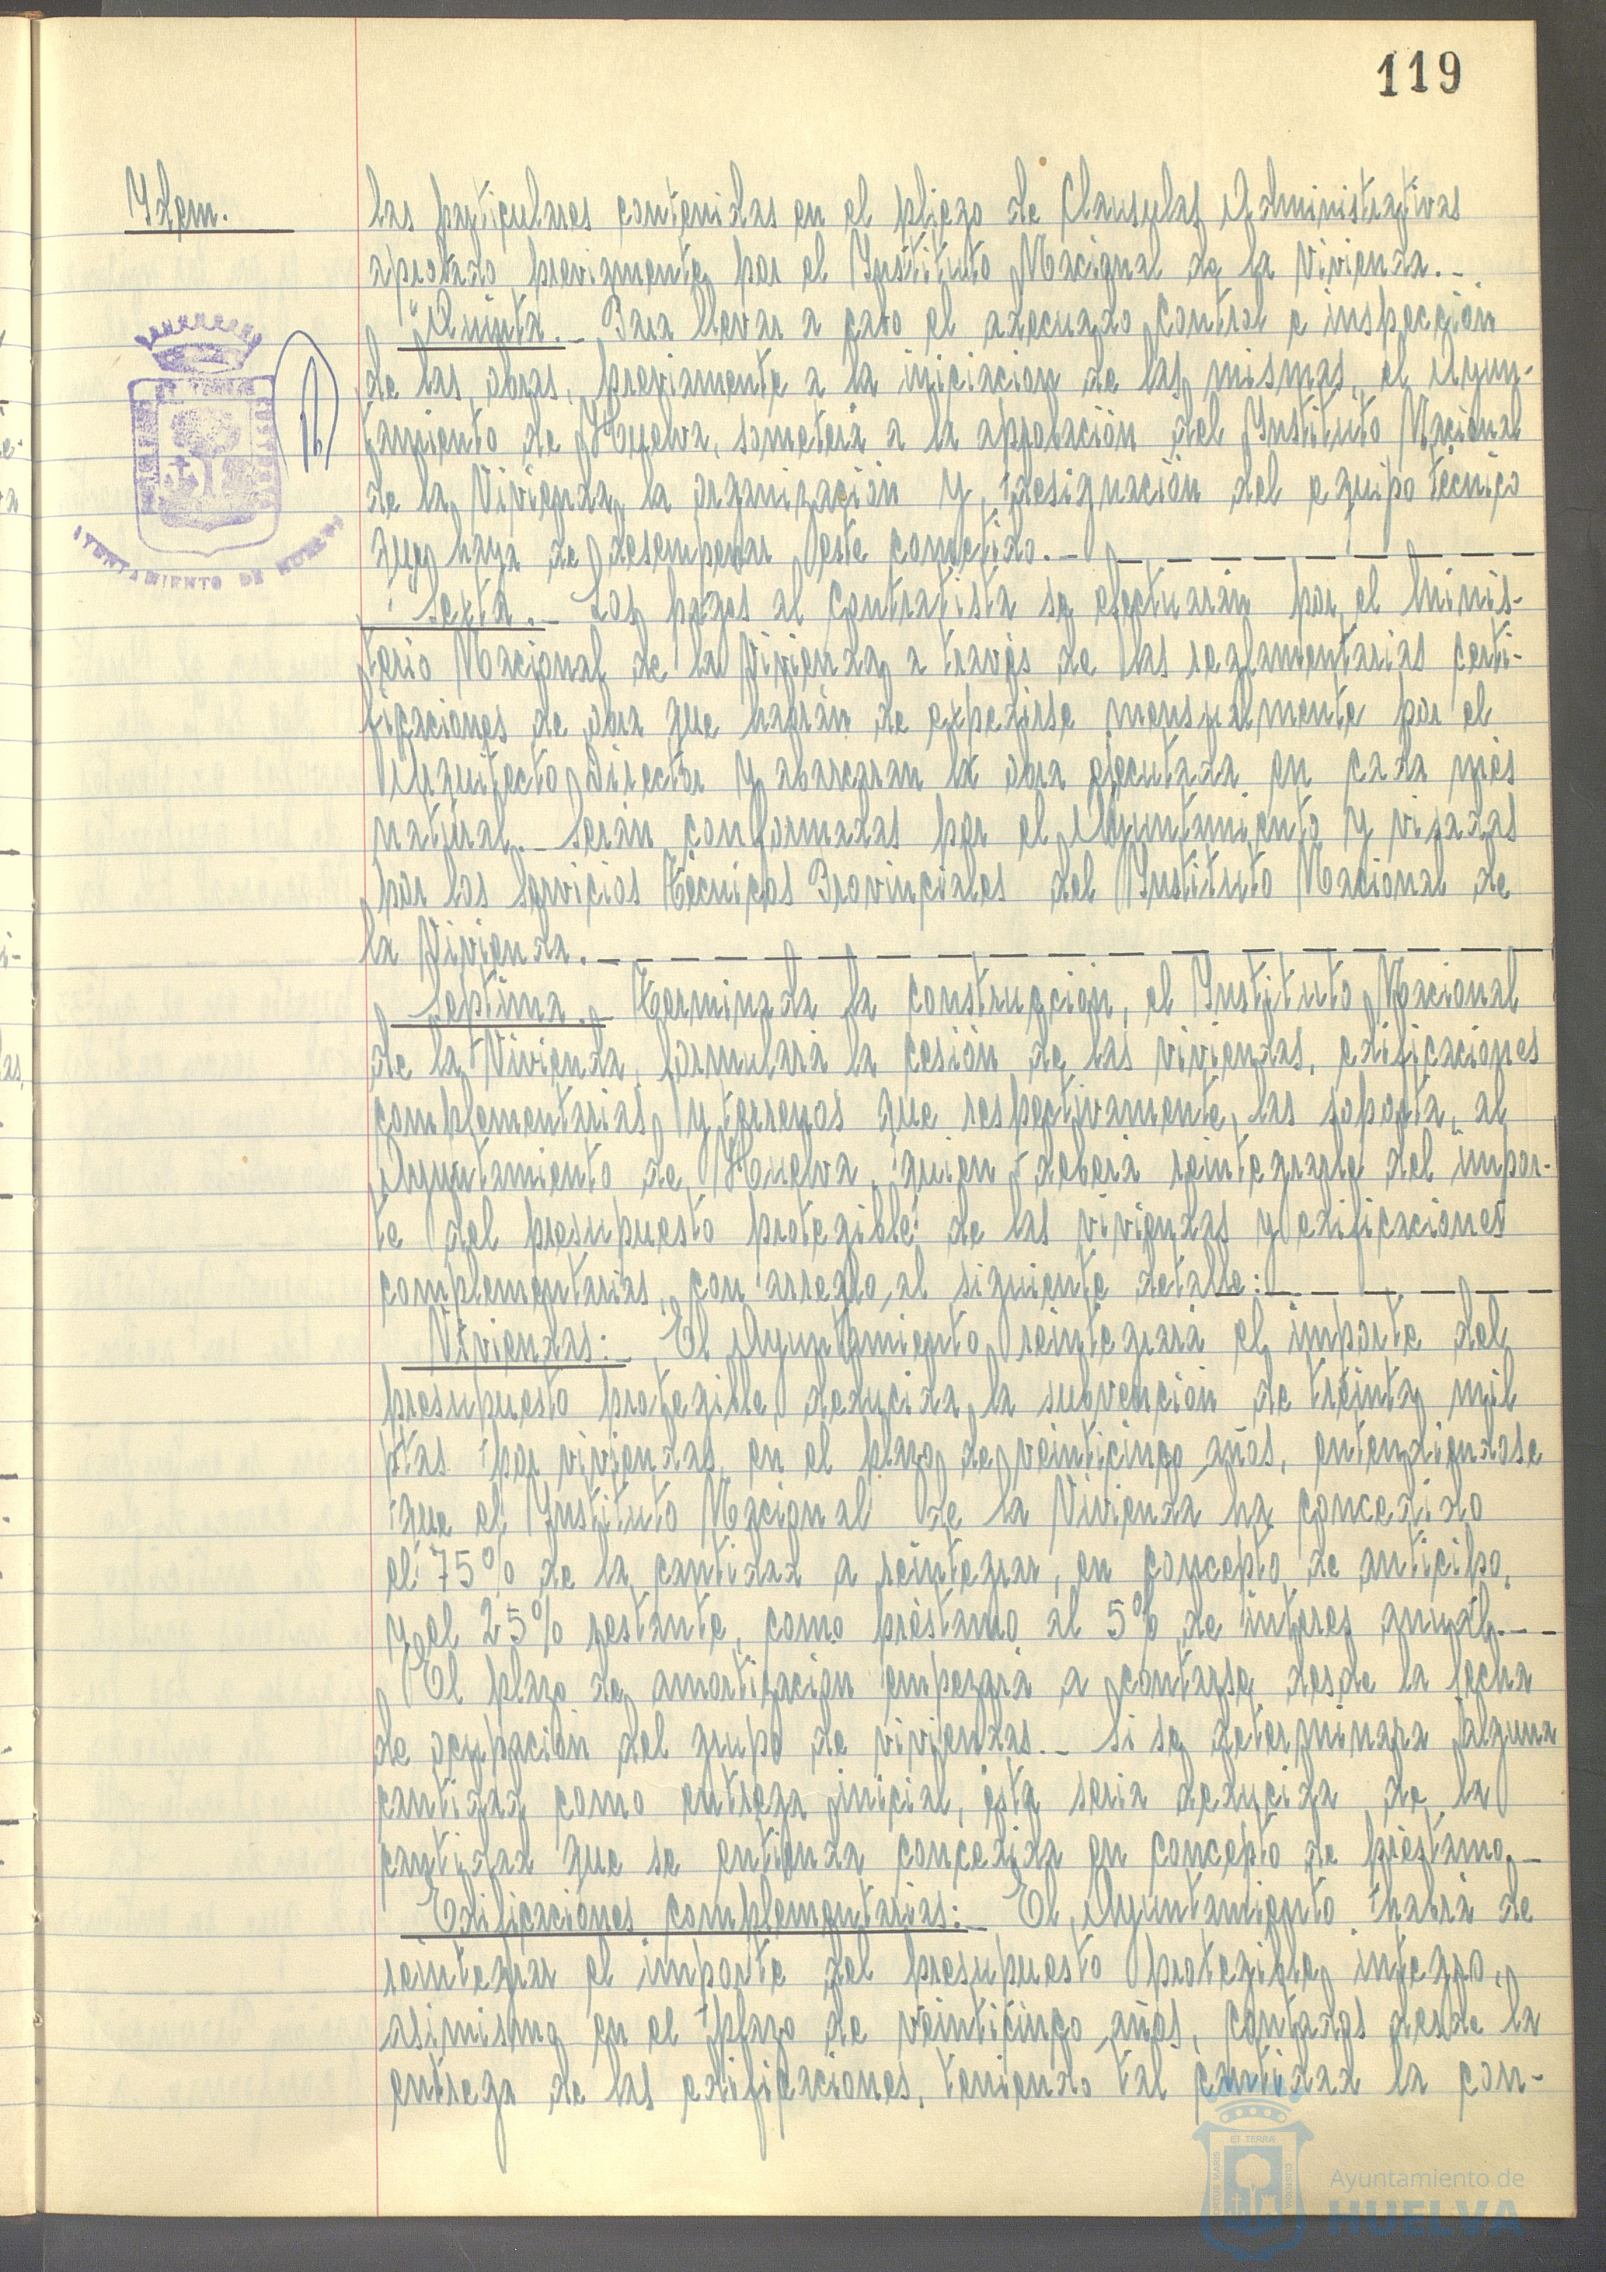 119
Ydem.
las particulares contenidas en el pliego de Clausulas Administrativas
aprobado previamente por el Ynstituto Nacional de la Vivienda.-
"Quinta.- Para llevar a cabo el adecuado control e inspección
de las obras, previamente a la iniciacion de las mismas, el Ayun-
tamiento de Huelva, someterá a la aprobación del Ynstituto Nacional
de la Vivienda la organización y designación del equipo técnico
que haya de desempeñar este cometido.-
AYUNTAMIENTO DE HUELVA
"Sexta.- Los pagos al contratista se efectuarán por el Minis-
terio Nacional de la Vivienda a través de las reglamentarias certi-
ficaciones de obra que habrán de expedirse mensualmente por el
Arquitecto Director y abarcaran la obra ejecutada en cada mes
natural.- Serán conformadas por el Ayuntamiento y visadas
por los Servicios Técnicos Provinciales del Ynstituto Nacional de
la Vivienda.-
Septima.- Terminada la construcción, el Ynstituto Nacional
de la Vivienda, formulará la cesión de las viviendas, edificaciones
complementarias y terrenos que respectivamente, las soporta, al
Ayuntamiento de Huelva, quien deberá reintegrarle del impor-
te del presupuesto protegible de las viviendas y edificaciones
complementarias, con arreglo al siguiente detalle:-
Viviendas:- El Ayuntamiento reintegrará el importe del
presupuesto protegible deducida la subvención de treinta mil
ptas por viviendas en el plazo de veinticinco años, entendiendose
que el Ynstituto Nacional de la Vivienda ha concedido
el 75% de la cantidad a reintegrar, en concepto de anticipo,
y el 25% restante, como préstamo al 5% de interes anual.-
El plazo de amortización empezará a contarse desde la fecha
de ocupación del grupo de viviendas.- Si se determinara alguna
cantidad como entrega inicial, ésta seria deducida de la
cantidad que se entienda concedida en concepto de préstamo.-
Edificaciones complementarias:- El Ayuntamiento habrá de
reintegrar el importe del presupuesto protegible integro,
asimismo en el plazo de veinticinco años, contados desde la
entrega de las edificaciones, teniendo tal cantidad la con-
Ayuntamiento de
HUELVA